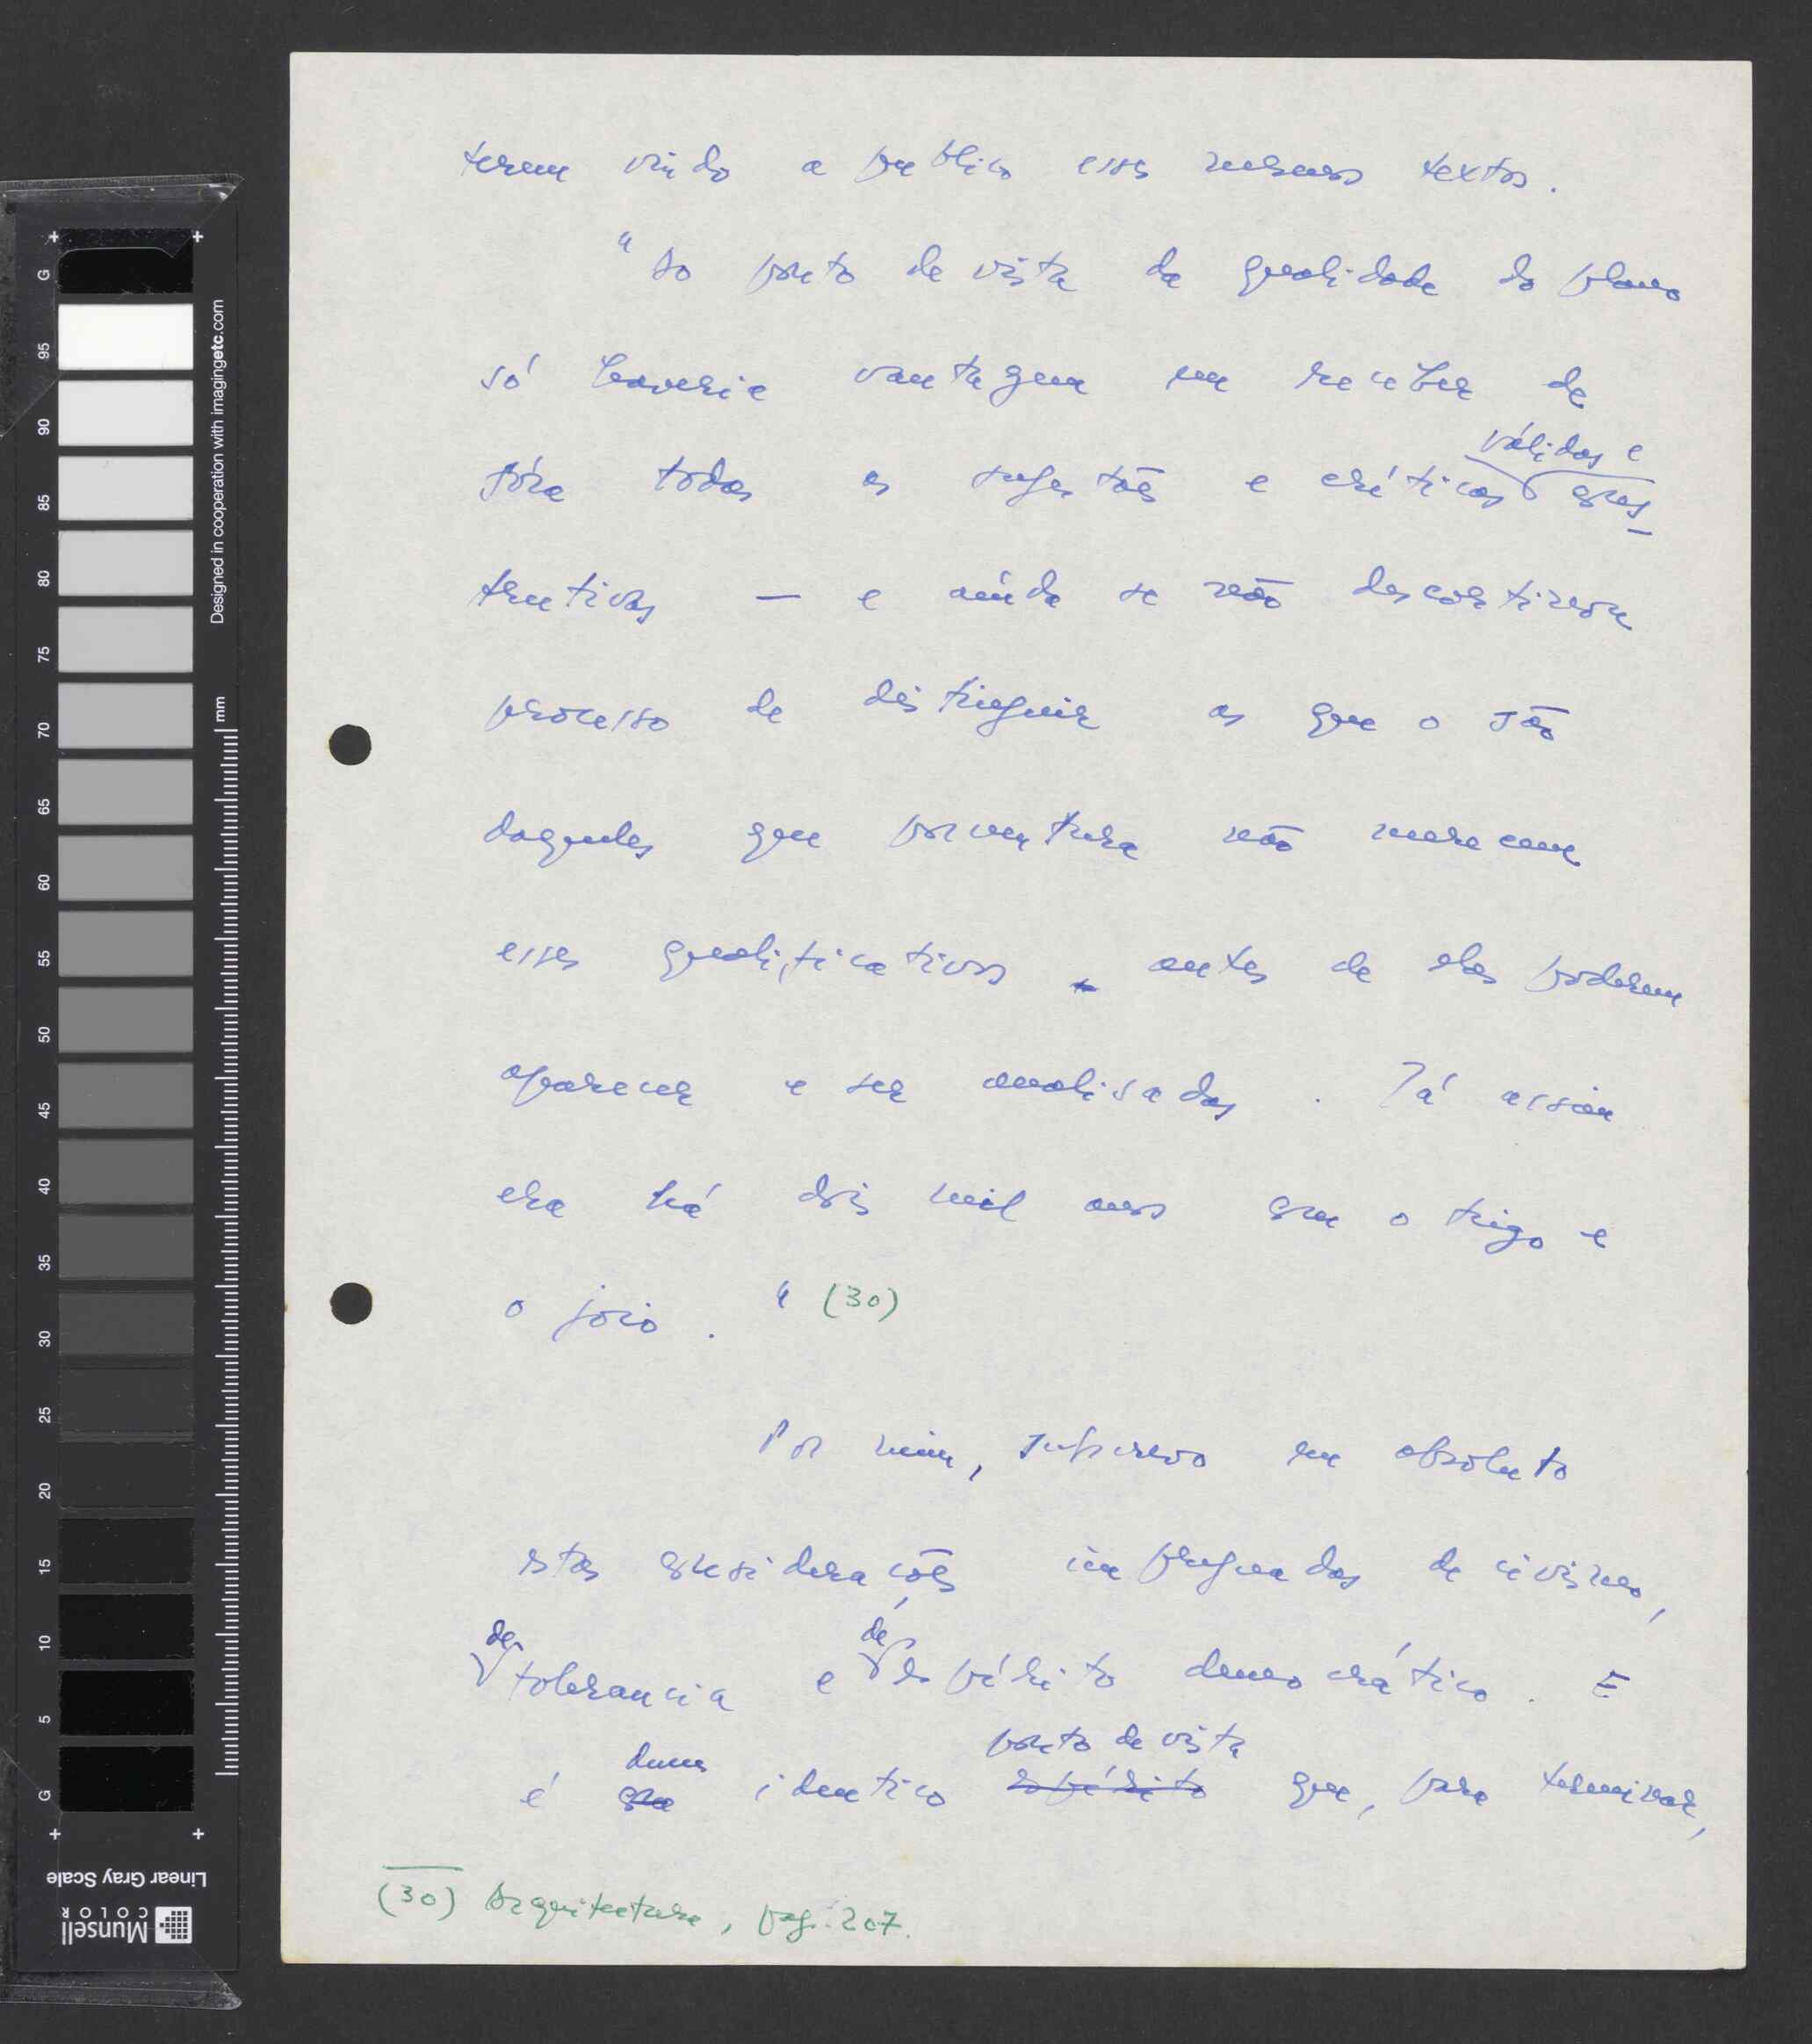 terem vindo a publico esses mesmos textos.
"Do ponto de vista da qualidade do plano
só haveria vantagem em receber de
válidas e
fóra todas as sugestões e críticas cons-
trutivas — e ainda se não descortinou
processo de distinguir as que o são
daquelas que porventura não merecem
esses qualificativos antes de elas poderem
aparecer e ser analisadas. Já assim
era há dois mil anos com o trigo e
o joio." (30)
Por mim, subscrevo em absoluto
estas considerações impregnadas de civismo,
de de
tolerancia e espírito democrático. E
duma ponto de vista
é com identico espírito que, para terminar,
(30) Arquitectura, pag. 207.
G 95 90 85 80 75 70 65 60 55 50 45 40 35 30 25 20 15 10 5 G
Designed in cooperation with imagingetc.com
mm
Linear Gray Scale
Munsell
COLOR